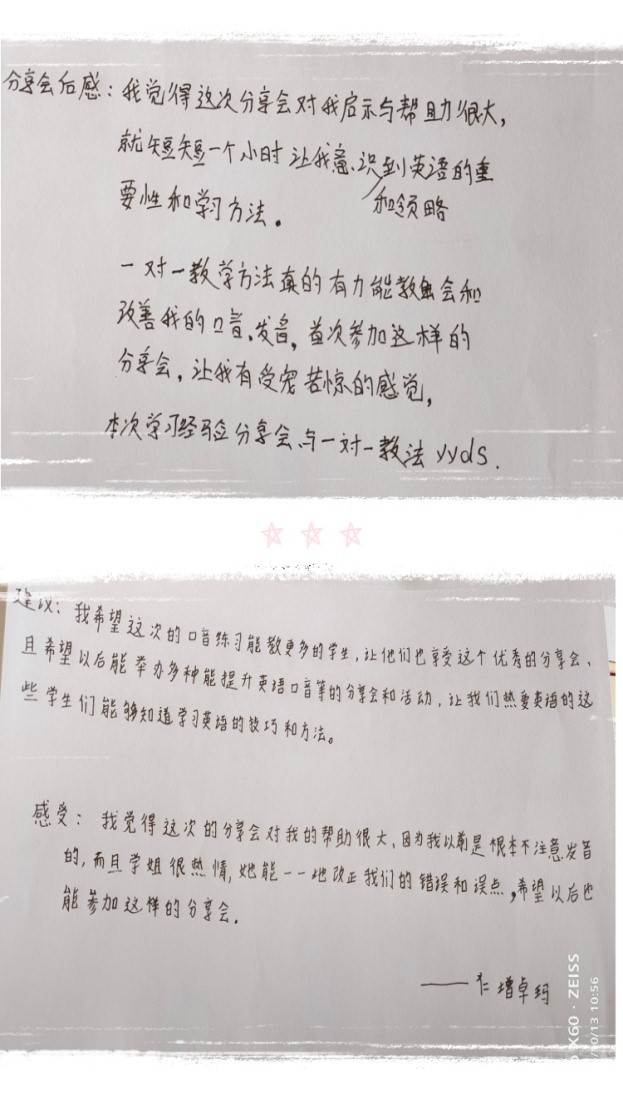 分享会后感：我觉得这次分享会对我启示与帮助很大，
就短短一个小时让我意识到英语的重
和领略
要性和学习方法。
一对一教学方法真的有力能教会和
改善我的口音，发音，首次参加这样的
分享会，让我有受宠若惊的感觉，
本次学习经验分享会与一对一教法yyds.
建议：我希望这次的口音练习能教更多的学生，让他们也享受这个优秀的分享会、
且希望以后能举办多种能提升英语口音等的分享会和活动，让我们热爱英语的这
些学生们能够知道学习英语的技巧和方法。
感受：我觉得这次的分享会对我的帮助很大、因为我以前是根本不注意发音
的，而且学姐很热情，她能一一地改正我们的错误和误点，希望以后也
能参加这样的分享会。
——仁增卓玛
X60 · ZEISS
/10/13 10:56